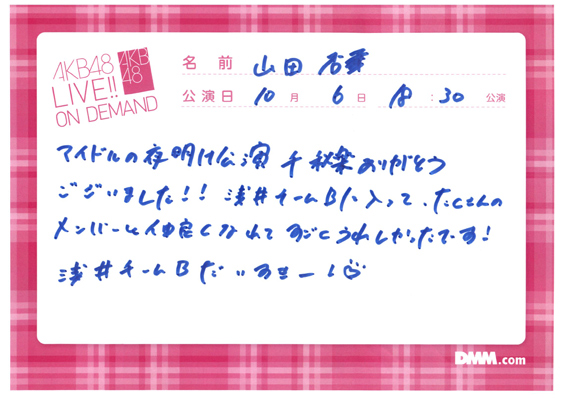 AKB48
LIVE!!
ON DEMAND
AKB
48
名前 山田 杏華
公演日 10月 6日 18:30 公演
アイドルの夜明け公演 千秋楽ありがとう
ございました!! 浅井チームBに入って、たくさんの
メンバーと仲良くなれて すごくうれしかったでーす!
浅井チームBだいすきー!
DMM.com